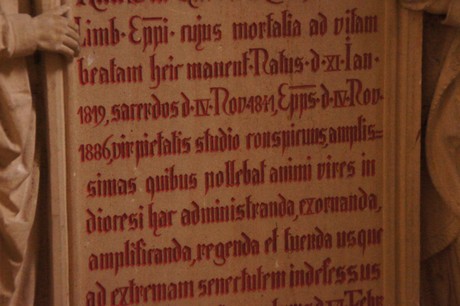 Limb · Eppi · cujus mortalia ad vitam
beatam heic manent · Natus · d · XI · Ian ·
1819, sacerdos d · IV · Nov · 1841, Epps · d · IV · Nov ·
1886, vir pietatis studio conspicuus, amplis=
simas quibus pollebat animi vires in
dioresi hac administranda, exornanda,
amplificanda, regenda et tuenda usque
ad extremam senectutem indefessus